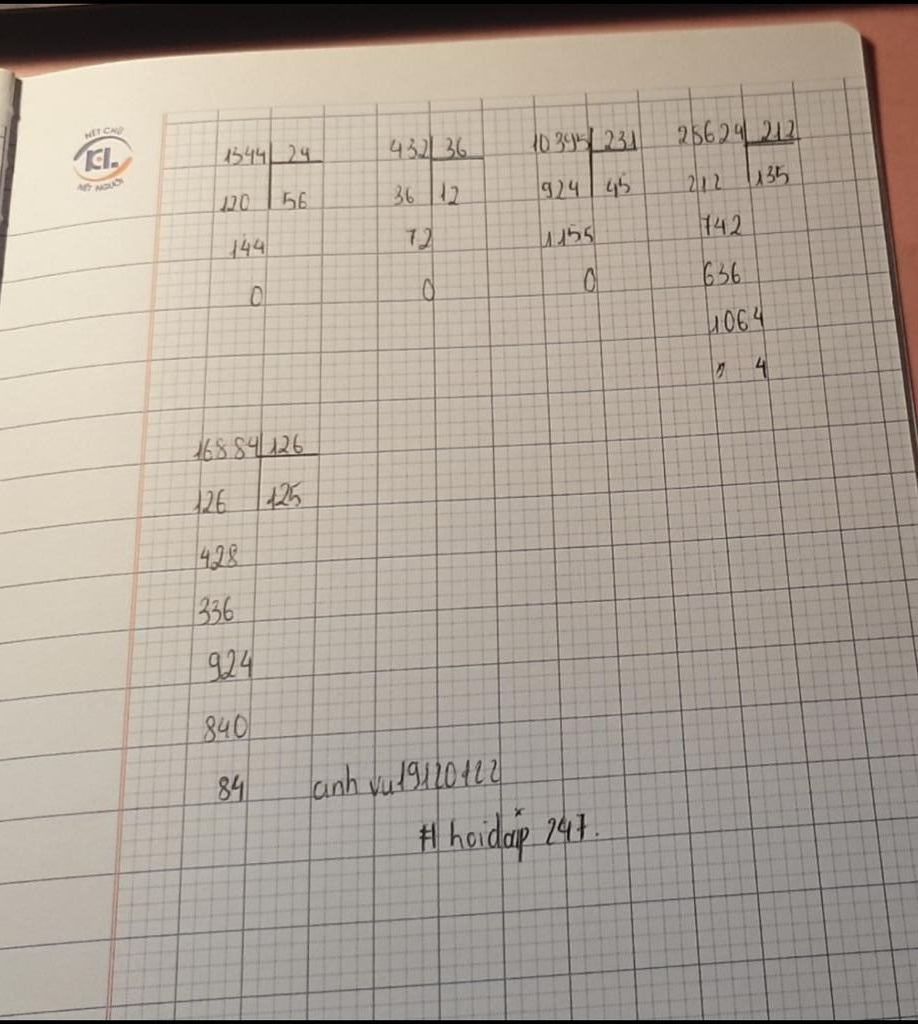 NÉT CHỮ
KL
NẾT NGƯỜI
1344 24
120 56
144
0
432 36
36 12
72
0
10395 231
924 45
1155
0
28624 212
212 135
742
636
1064
4
16884 126
126 125
428
336
924
840
84
anh vu19120122
# hoidap 247.